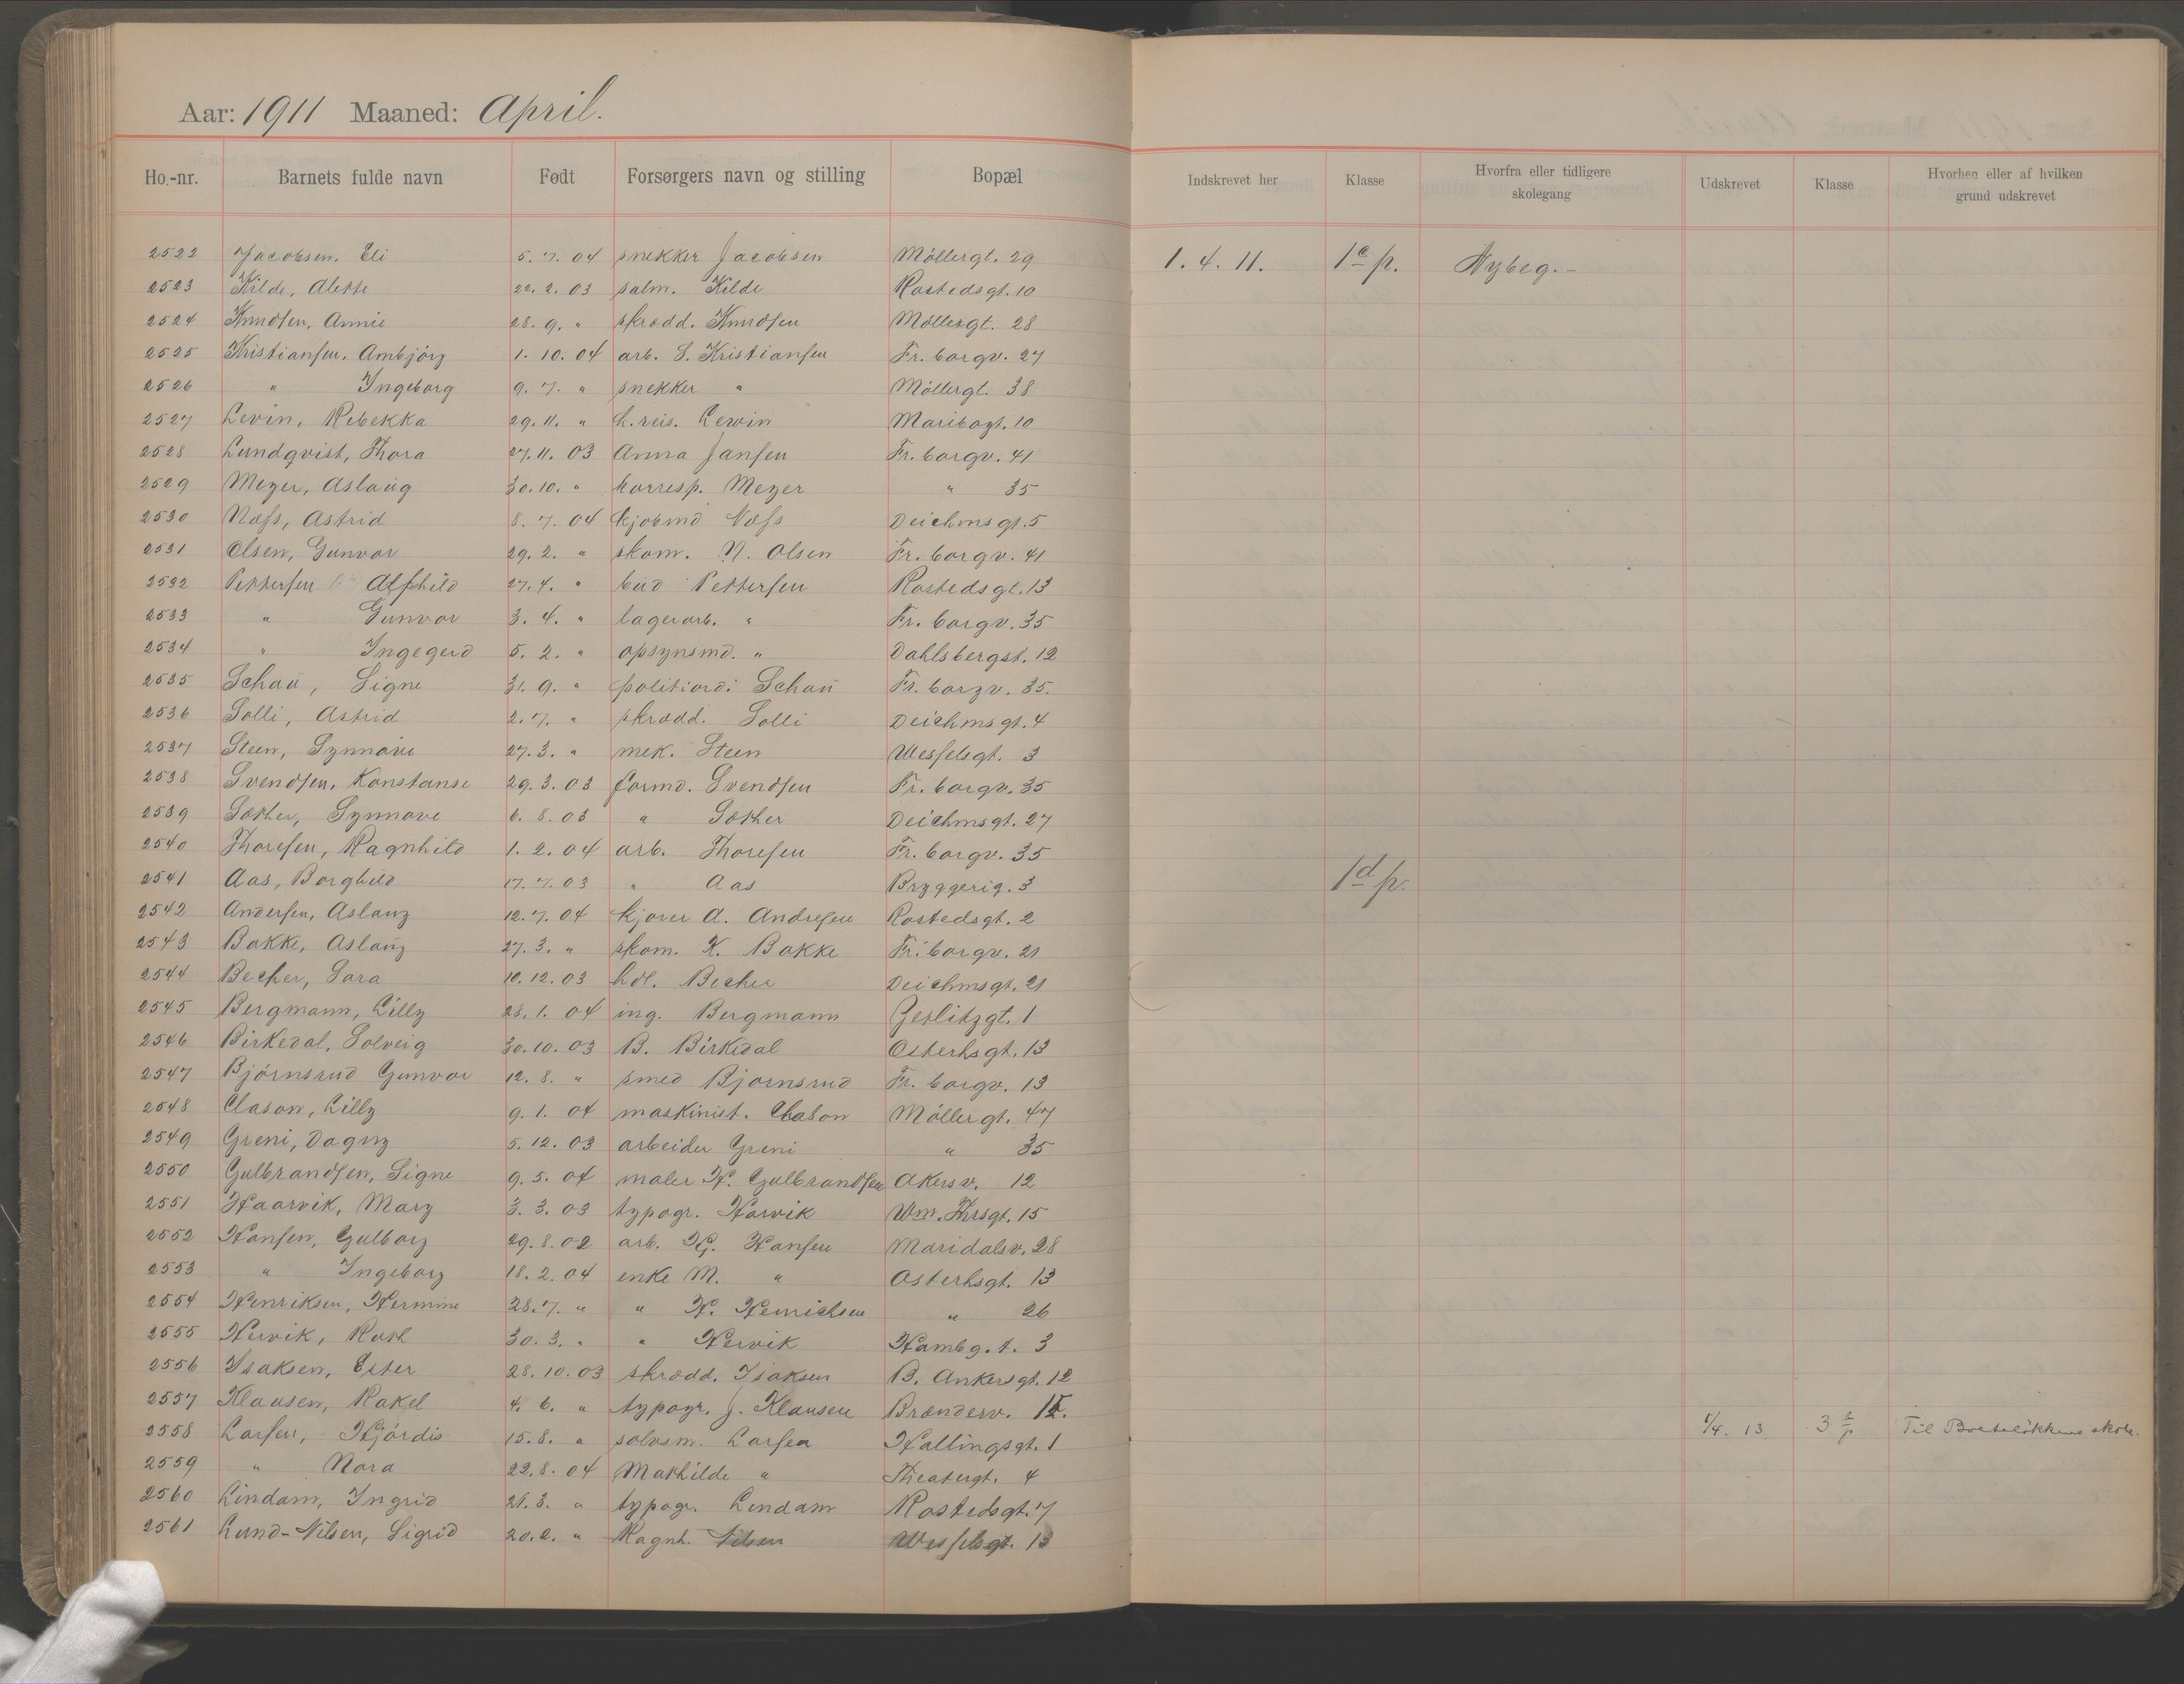 Aar: 1911 Maaned: April.
Ho.-nr. Barnets fulde navn Født Forsørgers navn og stilling Bopæl Indskrevet her Klasse Hvorfra eller tidligere skolegang Udskrevet Klasse Hvorhen eller af hvilken grund udskrevet
2522 Jacobsen, Eli 5. 7. 04 snekker Jacobsen Möllergt. 29 1. 4. 11. 1 c p. Nybeg. -
2523 Kilde, Alette 22. 2. 03 salm. Kilde Rostedsgt. 10
2524 Knudsen, Annie 28. 9. " skrædd. Knudsen Möllergt. 28
2525 Kristiansen, Ambjörg 1. 10. 04 arb. S. Kristiansen Fr. borgv. 27
2526 " Ingeborg 9. 7. " snekker " Möllergt. 38
2527 Levin, Rebekka 29. 11. " h.reis. Levin Maribogt. 10
2528 Lundqvist, Thora 27. 11. 03 Anna Jansen Fr. borgv. 41
2529 Meyer, Aslaug 30. 10. " korresp. Meyer " 35
2530 Næss, Astrid 8. 7. 04 kjøbmd Næss Deichmsgt. 5
2531 Olsen, Gunvor 29. 2. " skom. N. Olsen Fr. borgv. 41
2532 Pettersen Alfhild 27. 4. " bud Pettersen Rostedsgt. 13
2533 " Gunvor 3. 4. " lagerarb. " Fr. borgv. 35
2534 " Ingegerd 5. 2. " opsynsmd. " Dahlsbergst. 12
2535 Schau, Signe 31. 9. " politiord: Schau Fr. borgv. 35.
2536 Solli, Astrid 2. 7. " skrædd. Solli Deichmsgt. 4
2537 Steen, Synnøve 27. 3. " mek. Steen Wesselsgt. 3
2538 Svendsen, Konstanse 29. 3. 03 formd. Svendsen Fr. borgv. 35
2539 Sæther, Synnøve 6. 8. 03 " Sæther Deichmsgt. 27
2540 Thoresen, Ragnhild 1. 2. 04 arb. Thoresen Fr. borgv. 35
2541 Aas, Borghild 17. 7. 03 " Aas Bryggerig. 3 1 d p.
2542 Andersen, Aslaug 12. 7. 04 kjører A. Andresen Rostedsgt. 2
2543 Bakke, Aslaug 27. 3. " skom. K. Bakke Fr. borgv. 21
2544 Becher, Sara 10. 12. 03 hdl. Becher Deichmsgt. 21
2545 Bergmann, Lilly 28. 1. 04 ing. Bergmann Geslitzgt. 1
2546 Birkedal, Solveig 30. 10. 03 B. Birkedal Osterhsgt. 13
2547 Björnsrud Gunvor 12. 8. " smed Bjørnsrud Fr. borgv. 13
2548 Clason, Lilly 9. 1. 04 maskinist. Clason Möllergt. 47
2549 Greni, Dagny 5. 12. 03 arbeider Greni " 35
2550 Gulbrandsen, Signe 9. 5. 04 maler H. Gulbrandsen Akersv. 12
2551 Haarvik, Mary 3. 3. 03 typogr. Harvik Wm. Thrsgt. 15
2552 Hansen, Gulborg 29. 8. 02 arb. Hansen Maridalsv. 28
2553 " Ingeborg 18. 2. 04 enke M. " Osterhsgt. 13
2554 Henriksen, Hermine 28. 7. " " H. Henrichsen " 26
2555 Hervik, Ruth 30. 3. " " Hervik Hambg.t. 3
2556 Isaksen, Ester 28. 10. 03 skrædd. Isaksen B. Ankersgt. 12
2557 Klausen, Rakel 4. 6. " typogr. J. Klausen Brænderv.
2558 Larsen, Hjördis 15. 8. " solvsm. Larsen Hallingsgt. 1 1/4. 13 3 Til Bolteløkkens skole.
2559 " Nora 22. 8. 04 Mathilde " Theatergt. 4
2560 Lindam, Ingrid 28. 3. " typogr. Lindam Rostedsgt. 7
2561 Lund-Nilsen, Sigrid 20. 2. " Ragnh. Nilsen Wesselsgt. 13